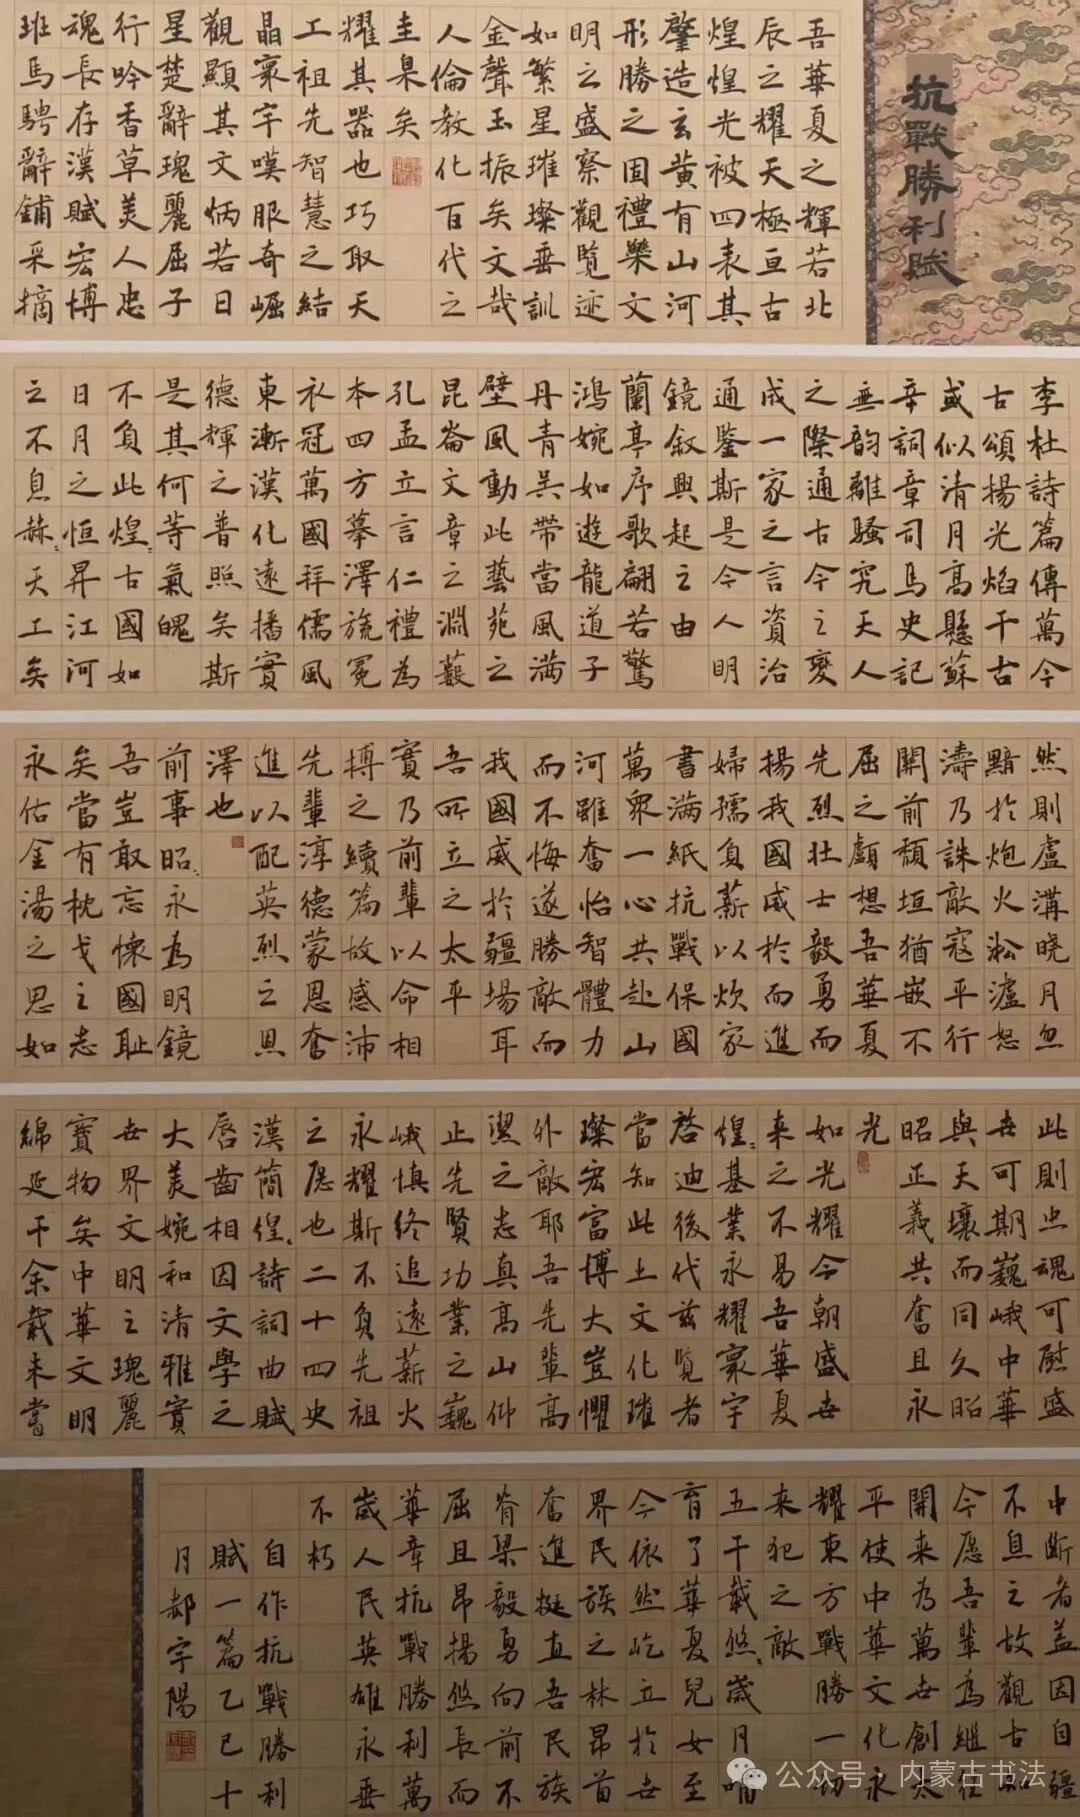 抗戰勝利賦
吾華夏之輝若北
辰之耀天極亘古
煌煌光被四表其
肇造玄黃有山河
形勝之固禮樂文
明之盛察觀覽迹
如繁星璀璨垂訓
金聲玉振矣文哉
人倫教化百代之
圭臬矣
耀其器也巧取天
工祖先智慧之結
晶寰宇嘆服奇崛
觀顯其文炳若日
星楚辭瑰麗屈子
行吟香草美人忠
魂長存漢賦宏博
班馬騁辭鋪采摛
李杜詩篇傳萬今
古頌揚光焰千古
或似清月高懸蘇
辛詞章司馬史記
無韵離騷究天人
之際通古今之變
成一家之言資治
通鑒斯是今人明
鏡敘興起之由
蘭亭序歌翩若驚
鴻婉如遊龍道子
丹青吳帶當風滿
壁風動此藝苑之
昆崙文章之淵藪
孔孟立言仁禮為
本四方摹澤旒冕
衣冠萬國拜儒風
東漸漢化遠播實
德輝之普照矣斯
是其何等氣魄
不負此煌〻古國如
日月之恒昇江河
之不息赫〻天工矣
然則盧溝曉月忽
黯於炮火淞滬怒
濤乃誅敵寇平行
關前頹垣猶嵌不
屈之顱想吾華夏
先烈壯士毅勇而
揚我國威於而進
婦孺負薪以炊家
書滿紙抗戰保國
萬眾一心共赴山
河雖奮怡智體力
而不悔遂勝敵而
我國威於疆場耳
吾所立之太平
實乃前輩以命相
搏之續篇故感沛
先輩淳德蒙恩奮
進以配英烈之恩
澤也
前事昭〻永為明鏡
吾豈敢忘懷國恥
矣當有枕戈之志
永佑金湯之思如
此則忠魂可慰盛
世可期巍峨中華
與天壤而同久昭
昭正義共奮且永
光
如光耀今朝盛世
来之不易吾華夏
煌〻基業永耀寰宇
啓迪後代茲覽者
當知此上文化璀
璨宏富博大豈懼
外敵耶吾先輩高
潔之志真高山仰
止先賢功業之巍
峨慎終追遠薪火
永耀斯不負先祖
之愿也二十四史
漢簡煌〻詩詞曲賦
唇齒相因文學之
大美婉和清雅實
世界文明之瑰麗
寶物矣中華文明
綿延千余載未嘗
中斷者蓋因自疆
不息之故觀古知
今愿吾輩為繼往
開来為萬世創太
平使中華文化永
耀東方戰勝一切
来犯之敵
五千載悠〻歲月
育了華夏兒女至
今依然屹立於世
界民族之林昂首
奮進挺直吾民族
脊梁毅勇向前不
屈且昂揚悠長而
華章抗戰勝利萬
歲人民英雄永垂
不朽
自作抗戰勝利
賦一篇乙巳十
月郝宇陽
公众号 · 内蒙古书法